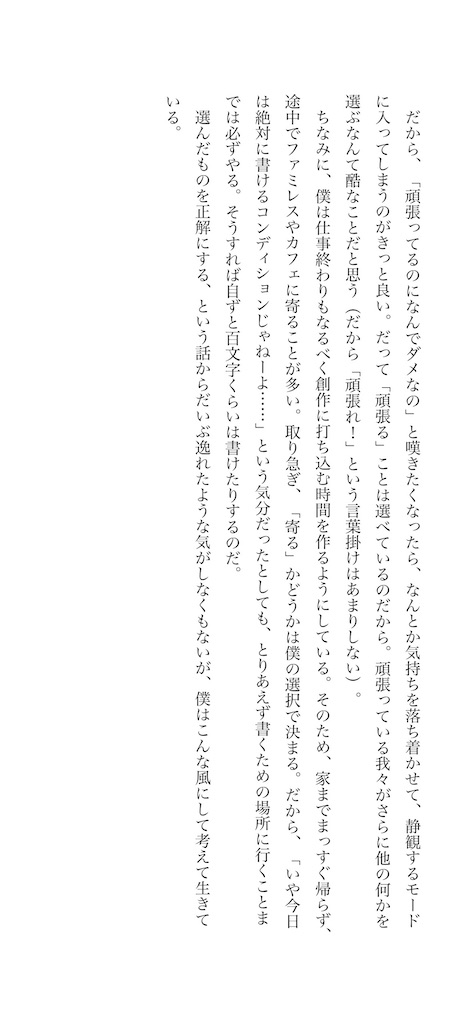 だから、「頑張ってるのになんでダメなの」と嘆きたくなったら、なんとか気持ちを落ち着かせて、静観するモード
に入ってしまうのがきっと良い。だって「頑張る」ことは選べているのだから。頑張っている我々がさらに他の何かを
選ぶなんて酷なことだと思う（だから「頑張れ！」という言葉掛けはあまりしない）。
　ちなみに、僕は仕事終わりもなるべく創作に打ち込む時間を作るようにしている。そのため、家までまっすぐ帰らず、
途中でファミレスやカフェに寄ることが多い。取り急ぎ、「寄る」かどうかは僕の選択で決まる。だから、「いや今日
は絶対に書けるコンディションじゃねーよ……」という気分だったとしても、とりあえず書くための場所に行くことま
では必ずやる。そうすれば自ずと百文字くらいは書けたりするのだ。
　選んだものを正解にする、という話からだいぶ逸れたような気がしなくもないが、僕はこんな風にして考えて生きて
いる。